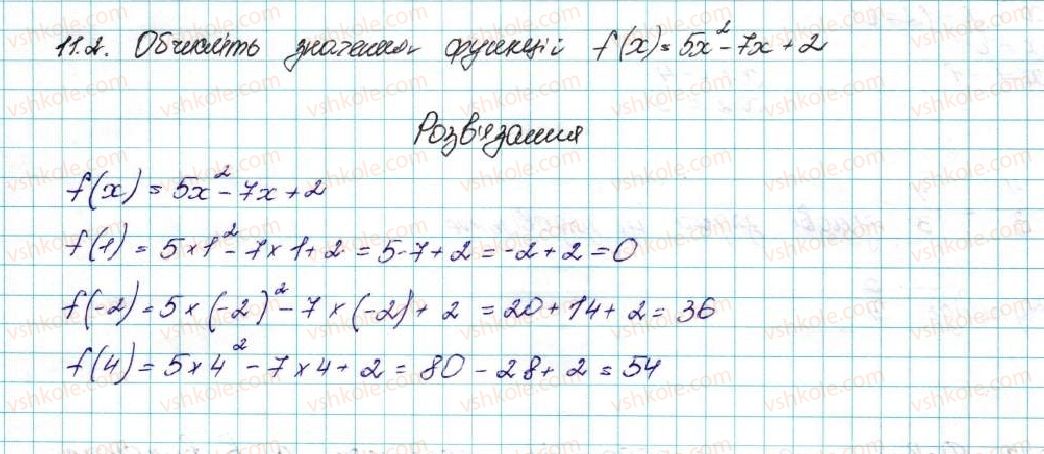 11.2. Обчисліть значення функції f(x) = 5x² - 7x + 2
Розв'язання
f(x) = 5x² - 7x + 2
f(1) = 5 × 1² - 7 × 1 + 2 = 5 - 7 + 2 = -2 + 2 = 0
f(-2) = 5 × (-2)² - 7 × (-2) + 2 = 20 + 14 + 2 = 36
f(4) = 5 × 4² - 7 × 4 + 2 = 80 - 28 + 2 = 54